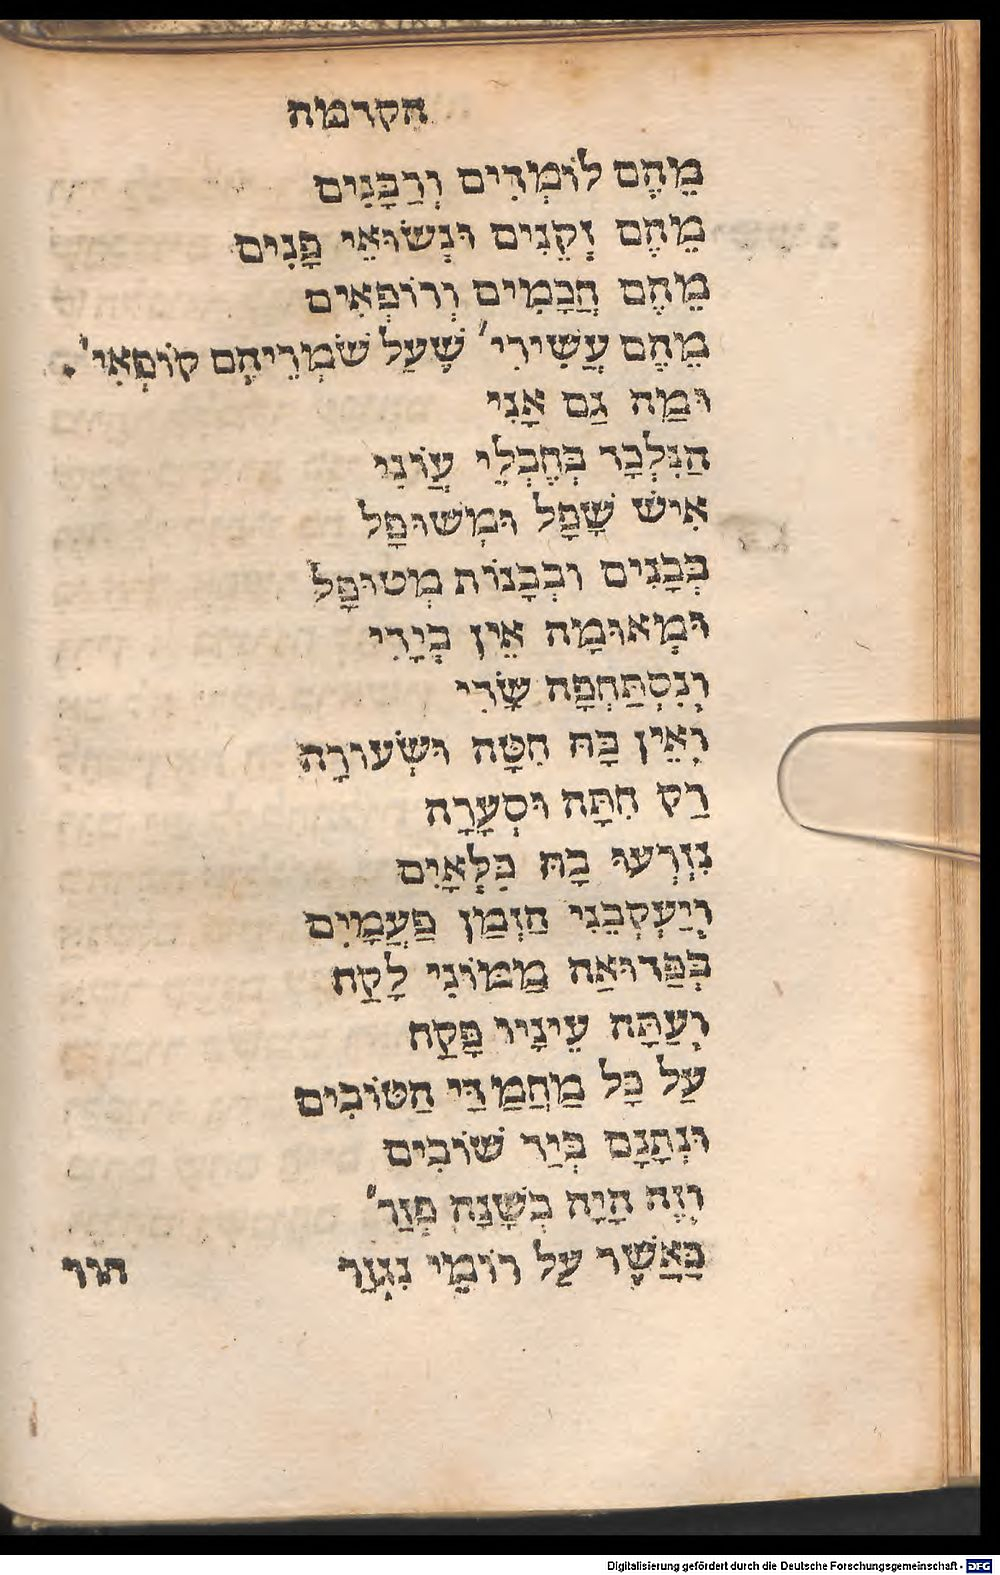 הקדמה
מֵהֶם לוֹמְדִים וְרַבָּנִים
מֵהֶם זְקֵנִים וּנְשׂוּאֵי פָּנִים
מֵהֶם חֲכָמִים וְרוֹפְאִים
מֵהֶם עֲשִׁירִי' שֶׁעַל שִׁמְרֵיהֶם קוֹפְאִי'
וּמַה גַם אָנִי
הַנִּלְכָּד בְּחֶבְלֵי עֲוֹנִי
אִישׁ שָׁפָל וּמְשׁוּפָל
בְּבָנִים וּבְבָנוֹת מְטוּפָּל
וּמְאוּמָה אֵין בְּיָדִי
וְנִסְתַּחְפָה שָׂדִי
וְאֵין בָּהּ חִטָּה וּשְׂעוֹרָה
רַק חִתָּה וּסְעָרָה
נִזְרְעוּ בָהּ כִּלְאָיִם
וַיַּעְקְבֵנִי הַזְמַן פַּעֲמָיִם
בְּפַּדוּאַה מַמּוֹנִי לָקַח
וְעַתָּה עֵינָיו פָּקַח
עַל כָּל מַחֲמַדַּי הַטּוֹבִים
וּנְתָנָם בְּיַד שׁוֹבִים
וְזֶה הָיָה בִּשְׁנַת פְגַר'
כַּאֲשֶׁר עַל רוֹמִי נִגְזַר
הוד
Digitalisierung gefördert durch die Deutsche Forschungsgemeinschaft - DFG